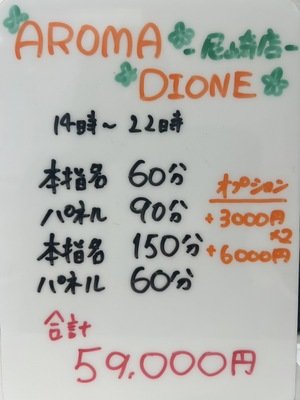 AROMA
-尼崎店-
DIONE
14時～22時
本指名 60分
パネル 90分
本指名 150分
パネル 60分
オプション
+3000円
×2
+6000円
合計
59,000円